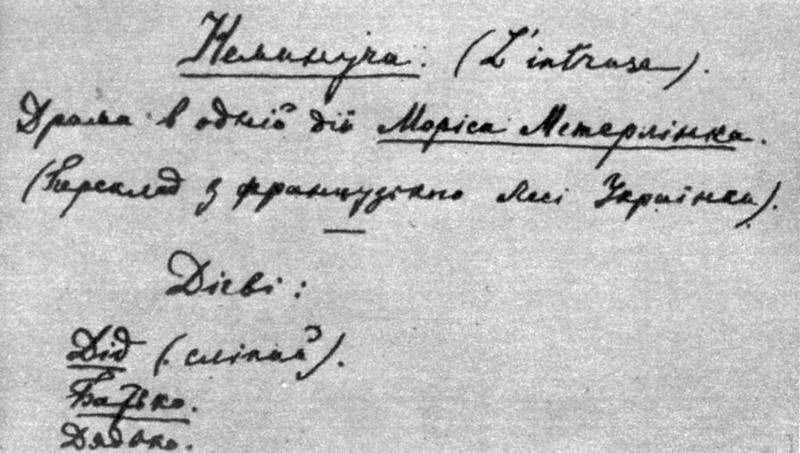 Неминуча. (L'intruse).
Драма в одній дії Моріса Метерлінка.
(Переклад з французського Лесі Українки).
Дієві:
Дід (сліпий).
Батько.
Дядько.